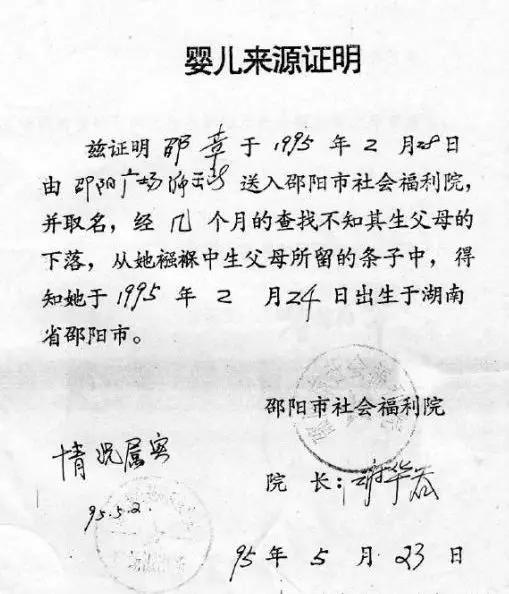 婴儿来源证明
兹证明 邵 章 于 1995 年 2 月28日
由 邵阳广场 送入邵阳市社会福利院,
并取名,经 几 个月的查找不知其生父母的
下落,从她襁褓中生父母所留的条子中,得
知她于 1995 年 2 月24日出生于湖南
省邵阳市。
邵阳市社会福利院
情况属实
院 长:谢华
95.5.2
95年5月23日